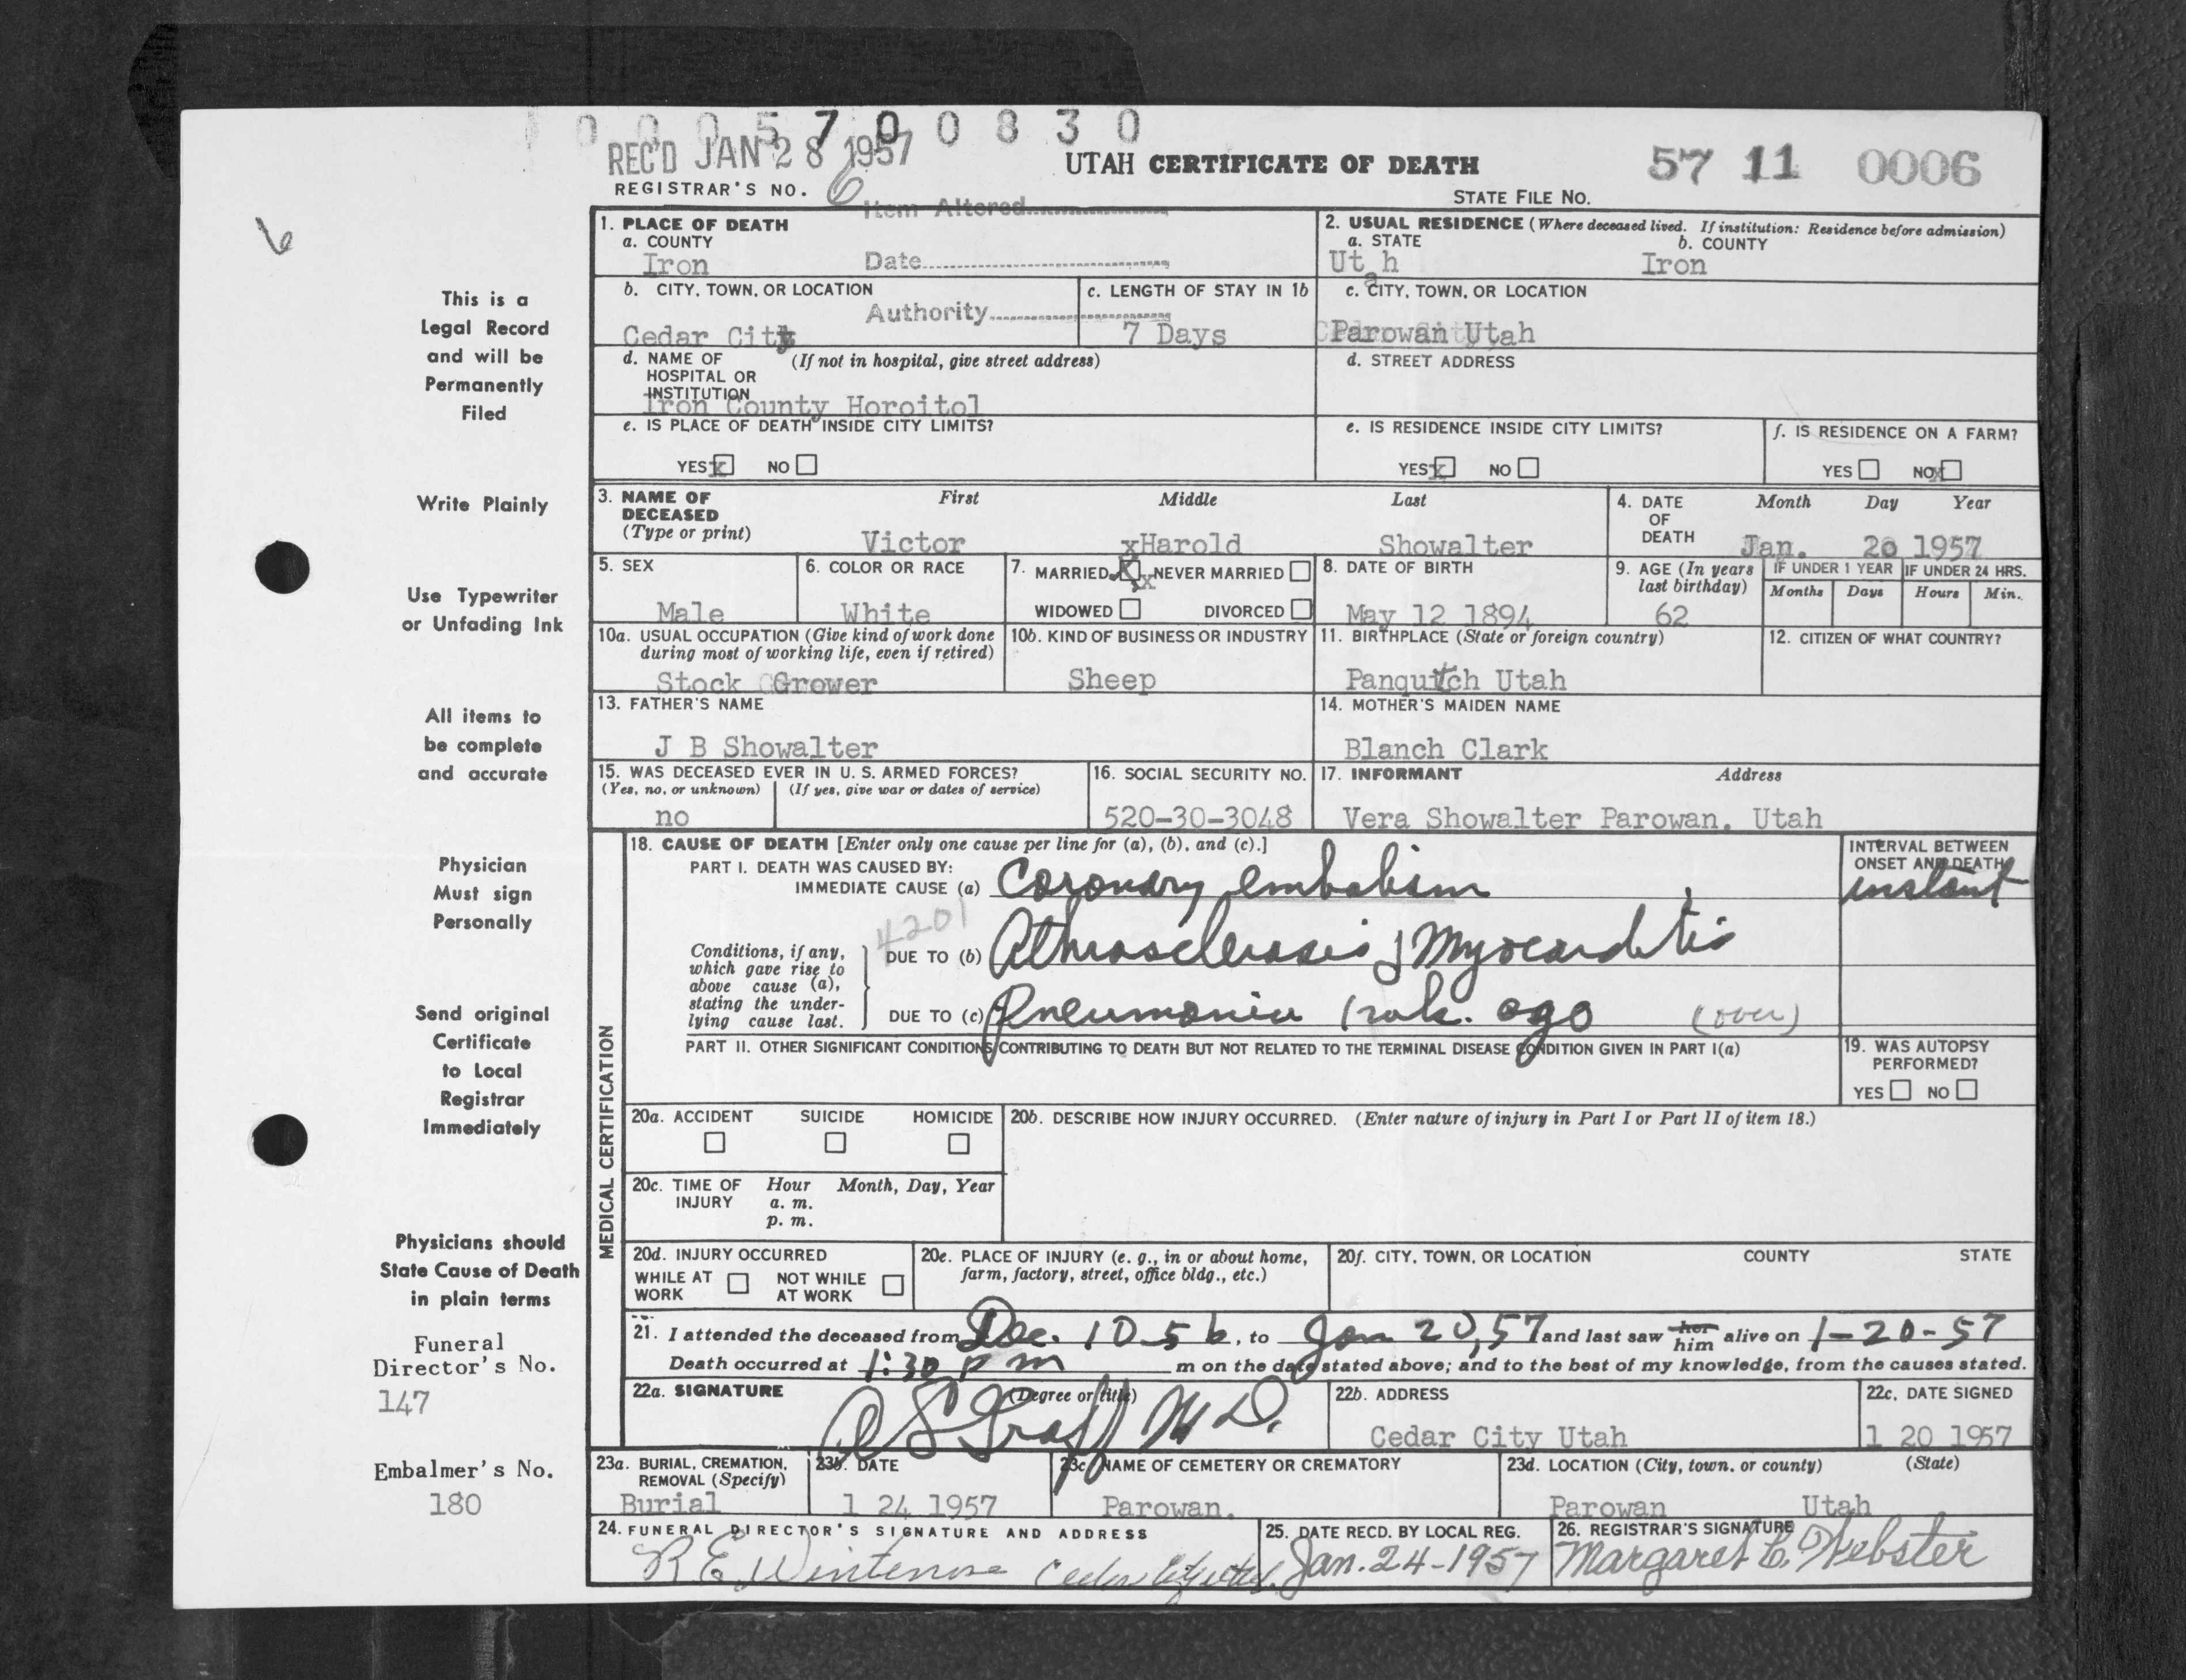 0 0 0 5 7 0 0 8 3 0
REC'D JAN 28 1957
UTAH CERTIFICATE OF DEATH
57 11 0006
REGISTRAR'S NO. 6
STATE FILE NO.
Item Altered
6
1. PLACE OF DEATH
a. COUNTY
Iron
Date
2. USUAL RESIDENCE (Where deceased lived. If institution: Residence before admission)
a. STATE
Utah
b. COUNTY
Iron
b. CITY, TOWN, OR LOCATION
Cedar City
Authority
c. LENGTH OF STAY IN 1b
7 Days
c. CITY, TOWN, OR LOCATION
Parowan Utah
d. NAME OF HOSPITAL OR INSTITUTION
(If not in hospital, give street address)
Iron County Horoitol
d. STREET ADDRESS
e. IS PLACE OF DEATH INSIDE CITY LIMITS?
YES x NO
e. IS RESIDENCE INSIDE CITY LIMITS?
YES x NO
f. IS RESIDENCE ON A FARM?
YES NO x
3. NAME OF DECEASED
(Type or print)
First Middle Last
Victor xHarold Showalter
4. DATE OF DEATH
Month Day Year
Jan. 20 1957
5. SEX
Male
6. COLOR OR RACE
White
7. MARRIED x NEVER MARRIED
WIDOWED DIVORCED
8. DATE OF BIRTH
May 12 1894
9. AGE (In years last birthday)
62
IF UNDER 1 YEAR
Months Days
IF UNDER 24 HRS.
Hours Min.
10a. USUAL OCCUPATION (Give kind of work done during most of working life, even if retired)
Stock Grower
10b. KIND OF BUSINESS OR INDUSTRY
Sheep
11. BIRTHPLACE (State or foreign country)
Panquitch Utah
12. CITIZEN OF WHAT COUNTRY?
13. FATHER'S NAME
J B Showalter
14. MOTHER'S MAIDEN NAME
Blanch Clark
15. WAS DECEASED EVER IN U. S. ARMED FORCES?
(Yes, no, or unknown) (If yes, give war or dates of service)
no
16. SOCIAL SECURITY NO.
520-30-3048
17. INFORMANT Address
Vera Showalter Parowan. Utah
MEDICAL CERTIFICATION
18. CAUSE OF DEATH [Enter only one cause per line for (a), (b), and (c).]
PART I. DEATH WAS CAUSED BY:
IMMEDIATE CAUSE (a) Coronary embolism
INTERVAL BETWEEN ONSET AND DEATH
instant
4201
Conditions, if any, which gave rise to above cause (a), stating the underlying cause last.
DUE TO (b) Athrosclerosis & Myocarditis
DUE TO (c) Pneumonia 1 wk. ago (over)
PART II. OTHER SIGNIFICANT CONDITIONS CONTRIBUTING TO DEATH BUT NOT RELATED TO THE TERMINAL DISEASE CONDITION GIVEN IN PART I(a)
19. WAS AUTOPSY PERFORMED?
YES NO
20a. ACCIDENT SUICIDE HOMICIDE
20b. DESCRIBE HOW INJURY OCCURRED. (Enter nature of injury in Part I or Part II of item 18.)
20c. TIME OF INJURY
Hour Month, Day, Year
a. m.
p. m.
20d. INJURY OCCURRED
WHILE AT WORK NOT WHILE AT WORK
20e. PLACE OF INJURY (e. g., in or about home, farm, factory, street, office bldg., etc.)
20f. CITY, TOWN, OR LOCATION COUNTY STATE
21. I attended the deceased from Dec. 10 56, to Jan 20, 57 and last saw her him alive on 1-20-57
Death occurred at 1:30 P m m on the date stated above; and to the best of my knowledge, from the causes stated.
22a. SIGNATURE (Degree or title)
A S Graff M D.
22b. ADDRESS
Cedar City Utah
22c. DATE SIGNED
1 20 1957
23a. BURIAL, CREMATION, REMOVAL (Specify)
Burial
23b. DATE
1 24 1957
23c. NAME OF CEMETERY OR CREMATORY
Parowan.
23d. LOCATION (City, town, or county) (State)
Parowan Utah
24. FUNERAL DIRECTOR'S SIGNATURE AND ADDRESS
R E Winterose Cedar City Utah.
25. DATE RECD. BY LOCAL REG.
Jan. 24-1957
26. REGISTRAR'S SIGNATURE
Margaret C. Webster
This is a
Legal Record
and will be
Permanently
Filed
Write Plainly
Use Typewriter
or Unfading Ink
All items to
be complete
and accurate
Physician
Must sign
Personally
Send original
Certificate
to Local
Registrar
Immediately
Physicians should
State Cause of Death
in plain terms
Funeral
Director's No.
147
Embalmer's No.
180